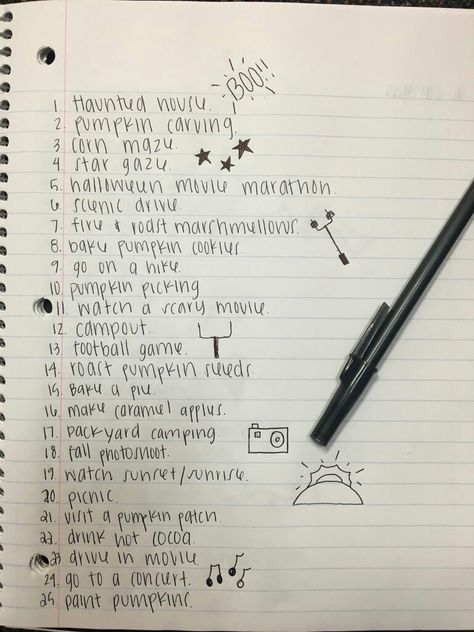 BOO!!
1 Haunted house.
2. pumpkin carving.
3 corn maze.
4 star gaze.
5. halloween movie marathon.
6. scenic drive.
7. fire & roast marshmellows.
8. bake pumpkin cookies.
9. go on a hike.
10. pumpkin picking
11. watch a scary movie.
12. campout.
13. football game.
14. roast pumpkin seeds.
15. Bake a pie.
16. make caramel apples.
17. backyard camping.
18. fall photoshoot.
19 watch sunset/sunrise.
20. picnic.
21. visit a pumpkin patch.
22. drink hot cocoa.
23 drive in movie.
24. go to a concert.
25. paint pumpkins.